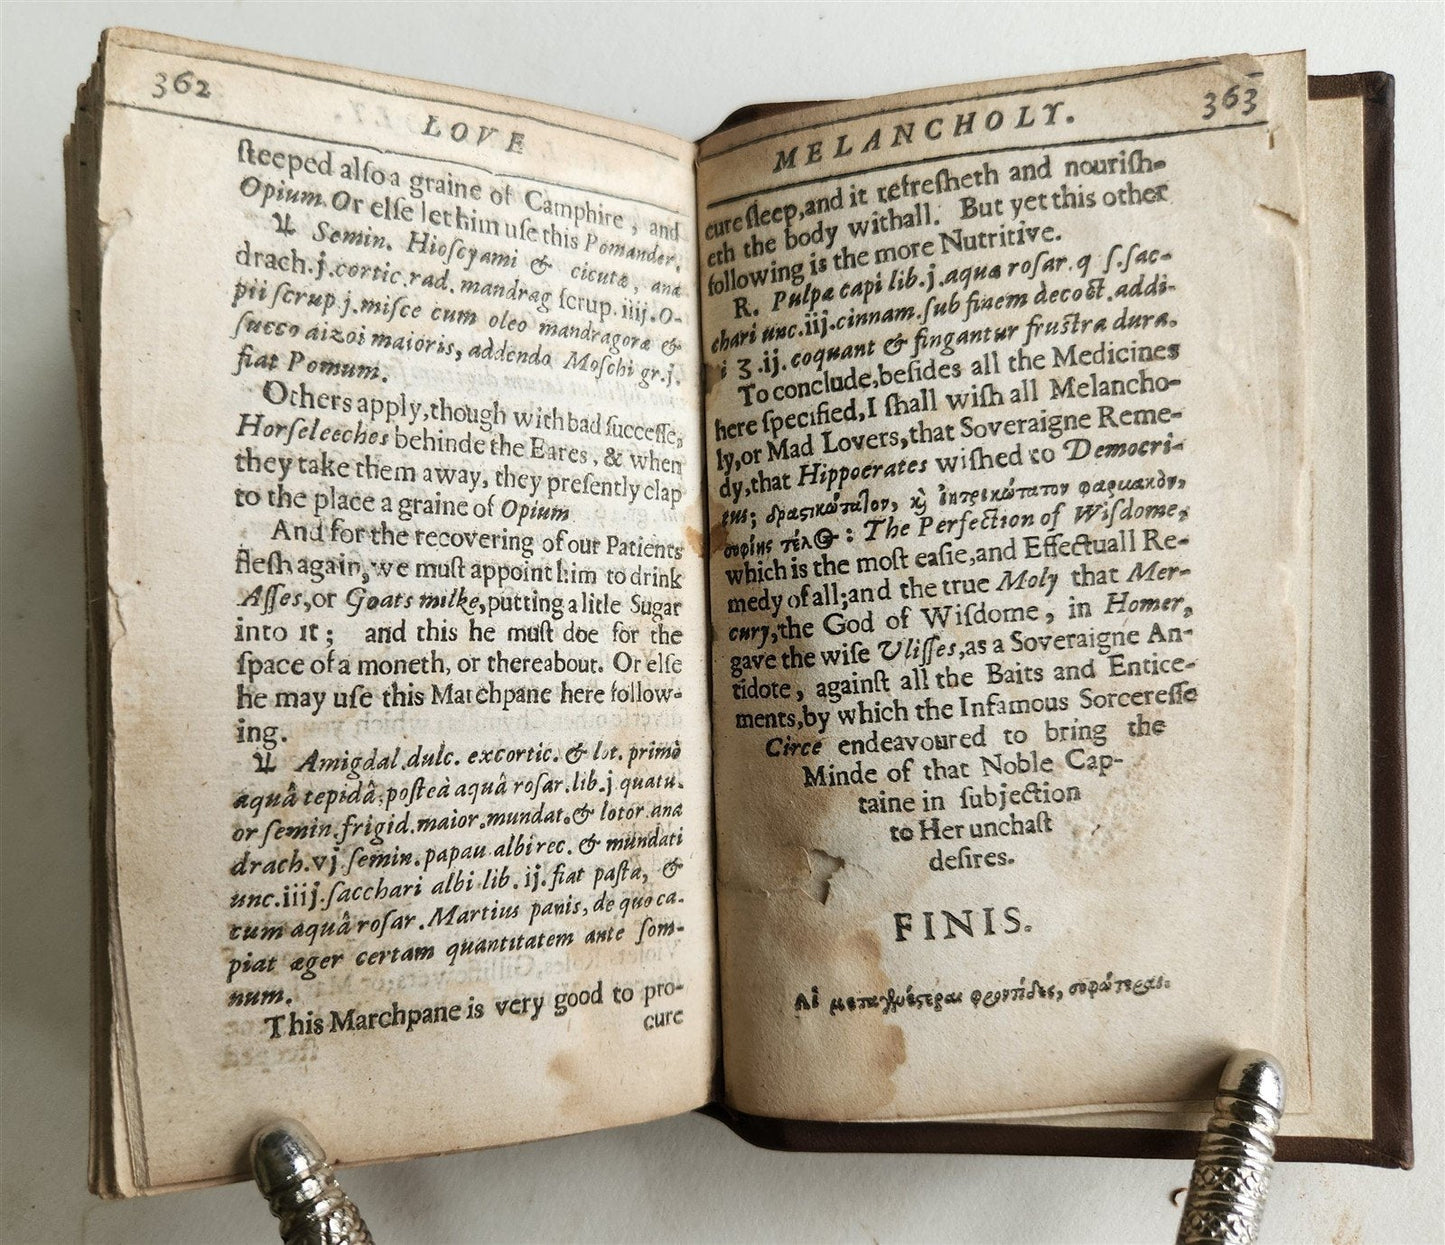 362
LOVE
ſteeped alſo a graine of Camphire, and
Opium. Or elſe let him uſe this Pomander.
℞ Semin. Hioſcyami & cicutæ, ana
drach.j.cortic.rad.mandrag ſcrup.iiij.O-
pii ſcrup j.miſce cum oleo mandragoræ &
ſucco aizoi maioris, addendo Moſchi gr.j.
fiat Pomum.
Others apply,though with bad ſucceſſe,
Horſeleeches behinde the Eares, & when
they take them away, they preſently clap
to the place a graine of Opium
And for the recovering of our Patients
fleſh again, we muſt appoint him to drink
Aſſes,or Goats milke,putting a litle Sugar
into it; and this he muſt doe for the
ſpace of a moneth, or thereabout. Or elſe
he may uſe this Matchpane here follow-
ing.
℞ Amigdal.dulc. excortic. & lot. primò
aquâ tepidâ,poſteà aquâ roſar.lib.j quatu.
or ſemin.frigid.maior.mundat.& lotor.ana
drach.vj ſemin.papau albi rec. & mundati
unc.iiij.ſacchari albi lib.ij.fiat paſta, &
cum aquâ roſar.Martius panis, de quo ca-
piat æger certam quantitatem ante ſom-
num.
This Marchpane is very good to pro-
cure
MELANCHOLY.
363
cure ſleep,and it refreſheth and nouriſh-
eth the body withall. But yet this other
following is the more Nutritive.
R. Pulpæ capi lib.j.aquæ roſar.q ſ.ſac-
chari unc.iij.cinnam.ſub finem decoct.addi-
i ʒ.ij.coquant & fingantur fruſtra dura.
To conclude,beſides all the Medicines
here ſpecified,I ſhall wiſh all Melancho-
ly,or Mad Lovers,that Soveraigne Reme-
dy,that Hippocrates wiſhed to Democri-
tus; δραςικώταῖον, κ̀ ἰητρικώτατον φαρμακὸν,
σοφίης τέλ⊙: The Perfection of Wiſdome,
which is the moſt eaſie,and Effectuall Re-
medy of all;and the true Moly that Mer-
cury,the God of Wiſdome, in Homer,
gave the wiſe Uliſſes,as a Soveraigne An-
tidote, againſt all the Baits and Entice-
ments,by which the Infamous Sorcereſſe
Circe endeavoured to bring the
Minde of that Noble Cap-
taine in ſubjection
to Her unchaſt
deſires.
FINIS.
Αἱ μεταγενέςεραι φροντίδες, σοφώτεραι.